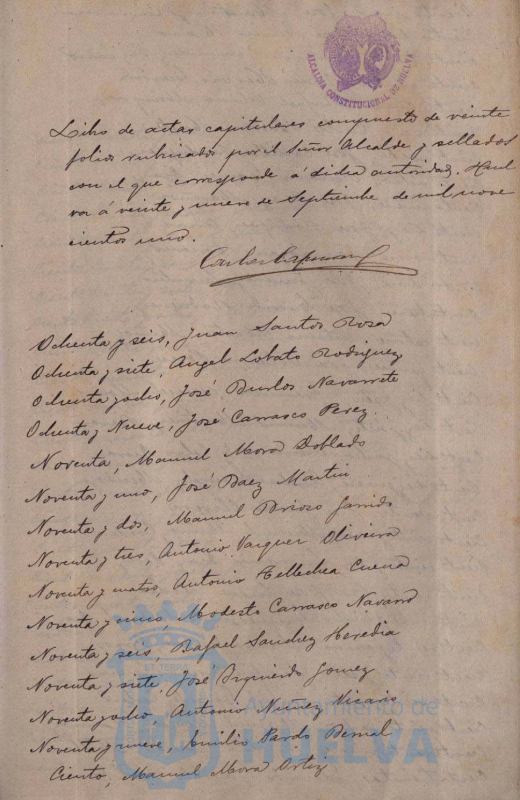 ALCALDIA CONSTITUCIONAL DE HUELVA
Libro de actas capitulares compuesto de veinte
folios rubricados por el Señor Alcalde y sellados
con el que corresponde á dicha autoridad. Huel
va á veinte y nueve de Septiembre de mil nove
cientos uno.
Ochenta y seis, Juan Santos Rosa
Ochenta y siete, Angel Lobato Rodriguez
Ochenta y ocho, José Burlos Navarrete
Ochenta y Nueve, José Carrasco Perez.
Noventa, Manuel Mora Doblado
Noventa y uno, José Baez Martin
Noventa y dos, Manuel Brioso Garrido
Noventa y tres, Antonio Vazquez Oliveira
Noventa y cuatro, Antonio Tellechea Cuena
Noventa y cinco Modesto Carrasco Navarro
Noventa y seis, Rafael Sanchez Heredia
Noventa y siete, José Izquierdo Gomez
Noventa y ocho, Antonio Nuñez
Noventa y nueve, Emilio Pardo Bernal
Ciento, Manuel Mora Ortiz
Ayuntamiento de
HUELVA